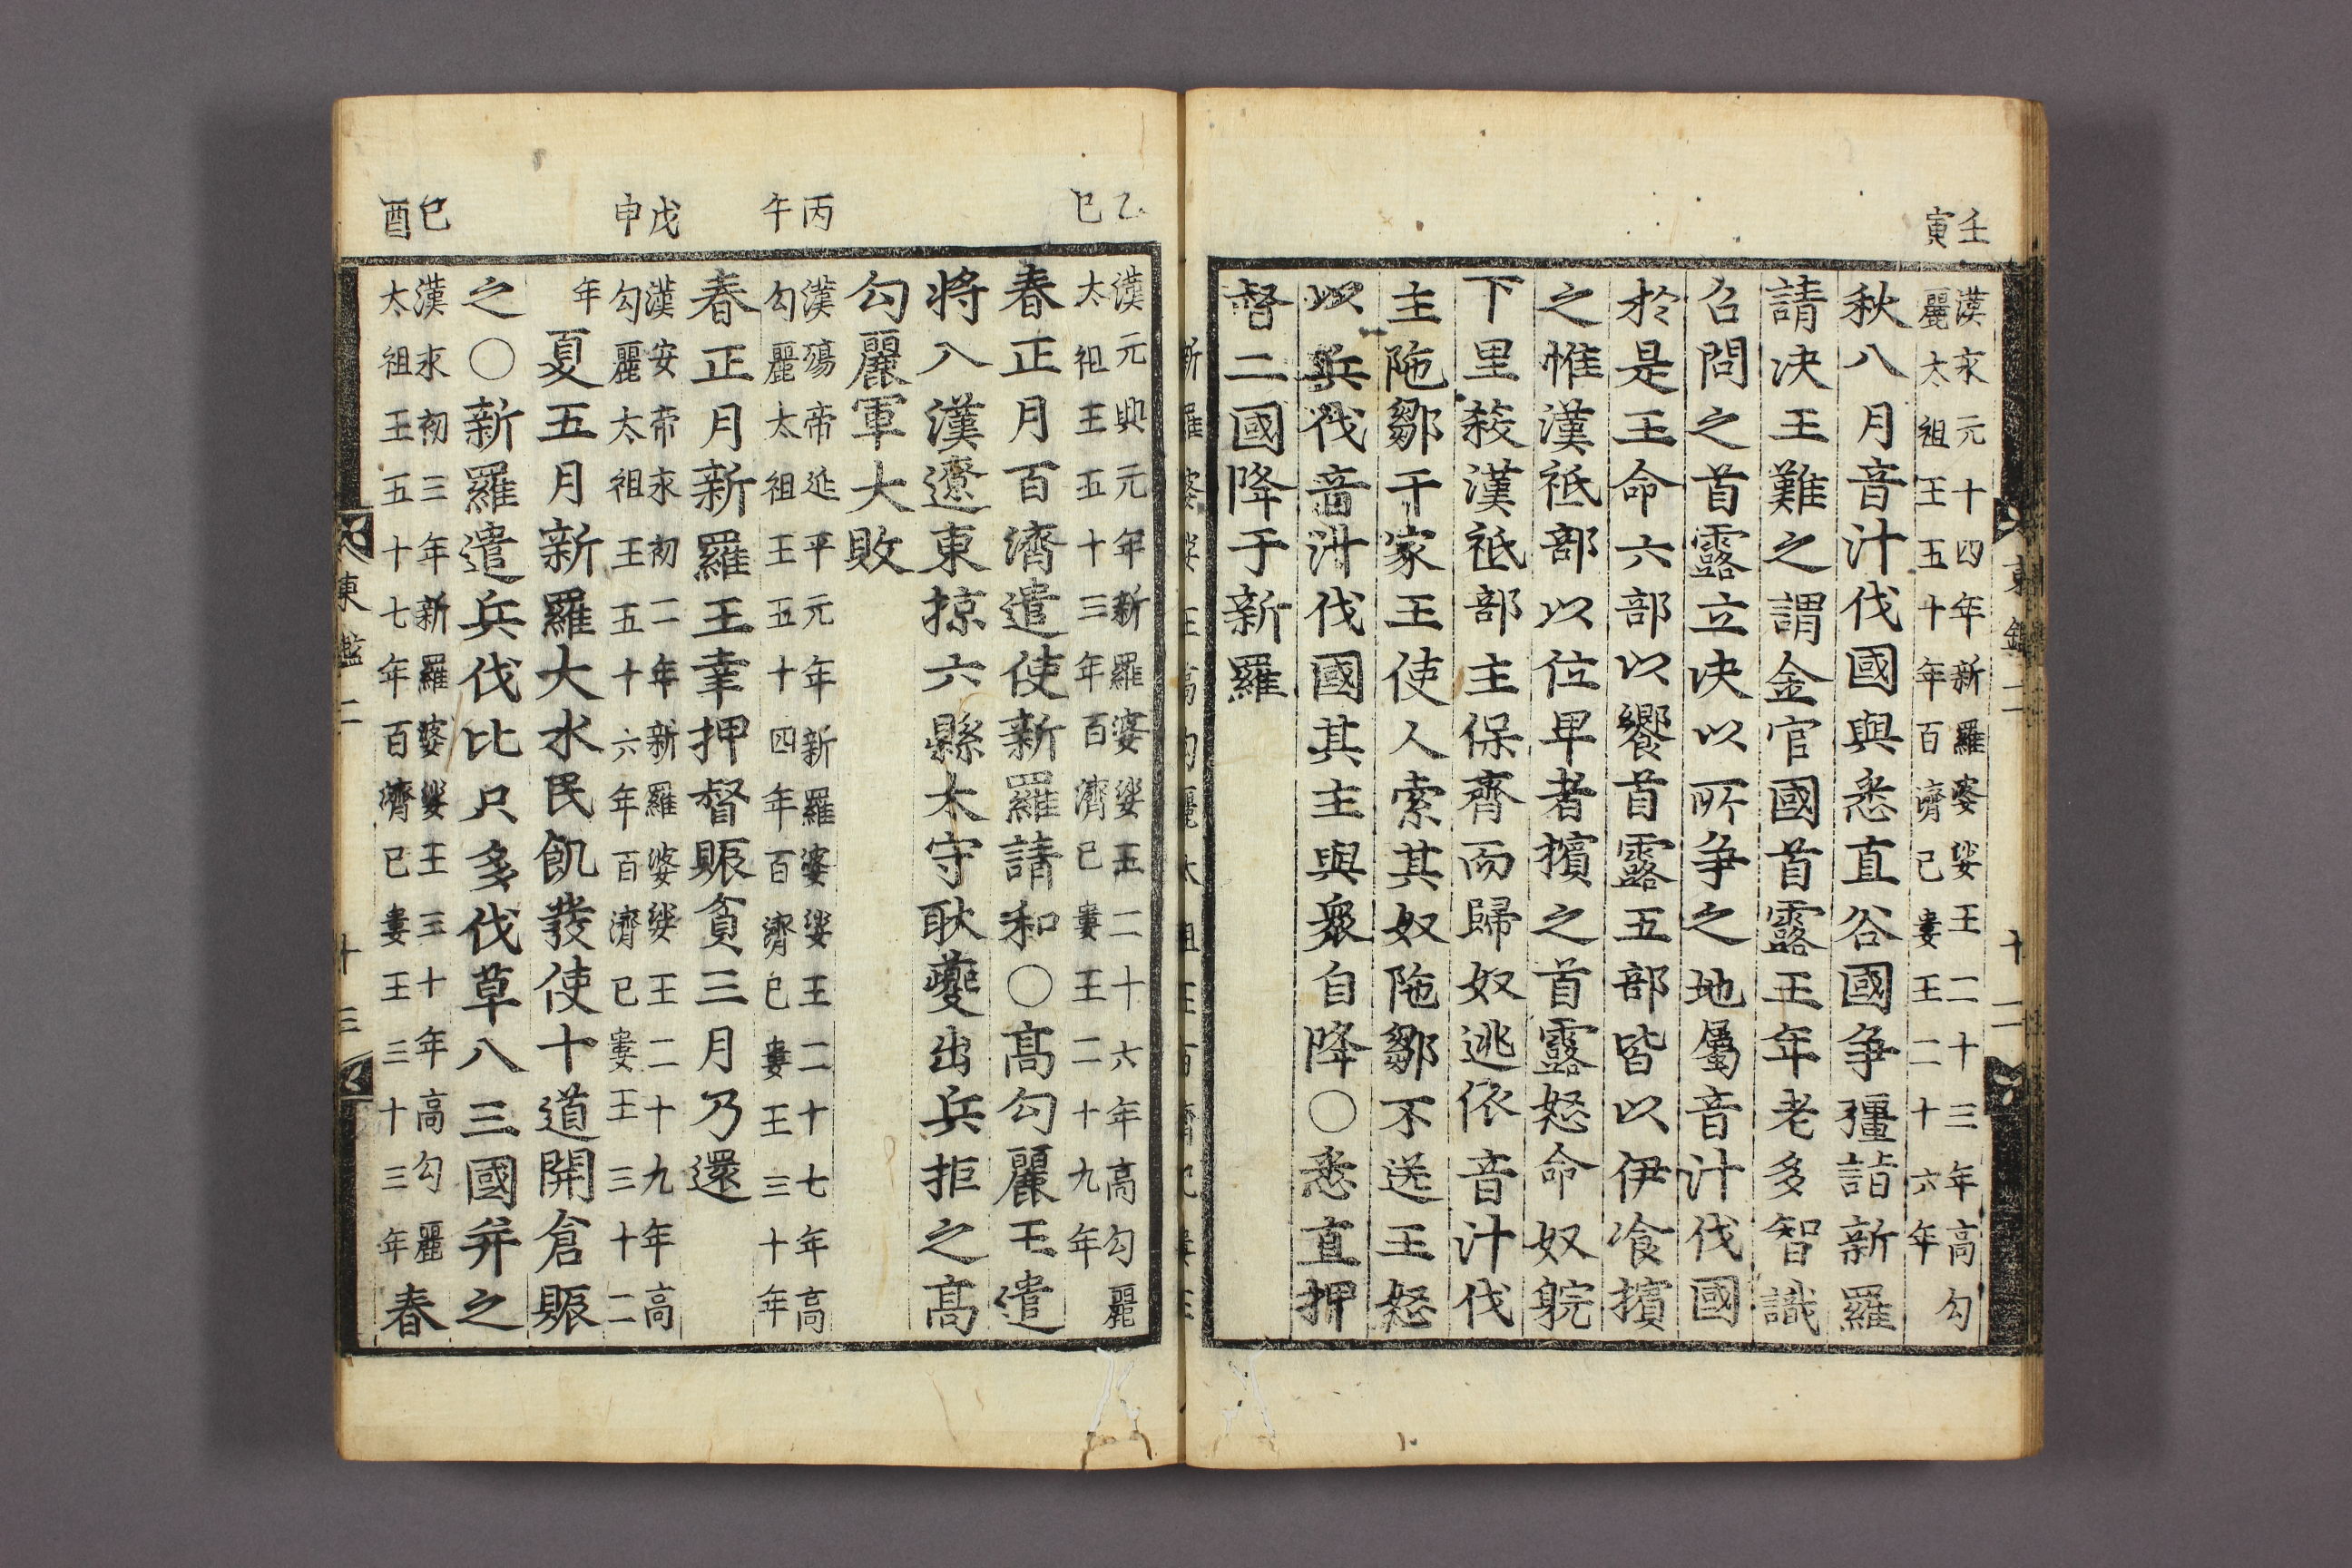 壬寅
漢永元十四年新羅婆娑王二十三年高勾
麗太祖王五十年百濟己婁王二十六年
秋八月音汁伐國與悉直谷國爭疆詣新羅
請决王難之謂金官國首露王年老多智識
召問之首露立决以所爭之地屬音汁伐國
於是王命六部以饗首露五部皆以伊飡擯
之惟漢祇部以位卑者擯之首露怒命奴躭
下里殺漢祇部主保齊而歸奴逃依音汁伐
主陁鄒干家王使人索其奴陁鄒不送王怒
以兵伐音汁伐國其主與衆自降○悉直押
督二國降于新羅
東鑑二
十二
乙巳
漢元興元年新羅婆娑王二十六年高勾麗
太祖王五十三年百濟己婁王二十九年
春正月百濟遣使新羅請和○高勾麗王遣
將入漢遼東掠六縣太守耿夔出兵拒之高
勾麗軍大敗
丙午
漢殤帝延平元年新羅婆娑王二十七年高
勾麗太祖王五十四年百濟己婁王三十年
春正月新羅王幸押督賑貧三月乃還
戊申
漢安帝永初二年新羅婆娑王二十九年高
勾麗太祖王五十六年百濟己婁王三十二
年
夏五月新羅大水民飢發使十道開倉賑
之○新羅遣兵伐比只多伐草八三國并之
己酉
漢永初三年新羅婆娑王三十年高勾麗
太祖王五十七年百濟己婁王三十三年
春
東鑑二
十三